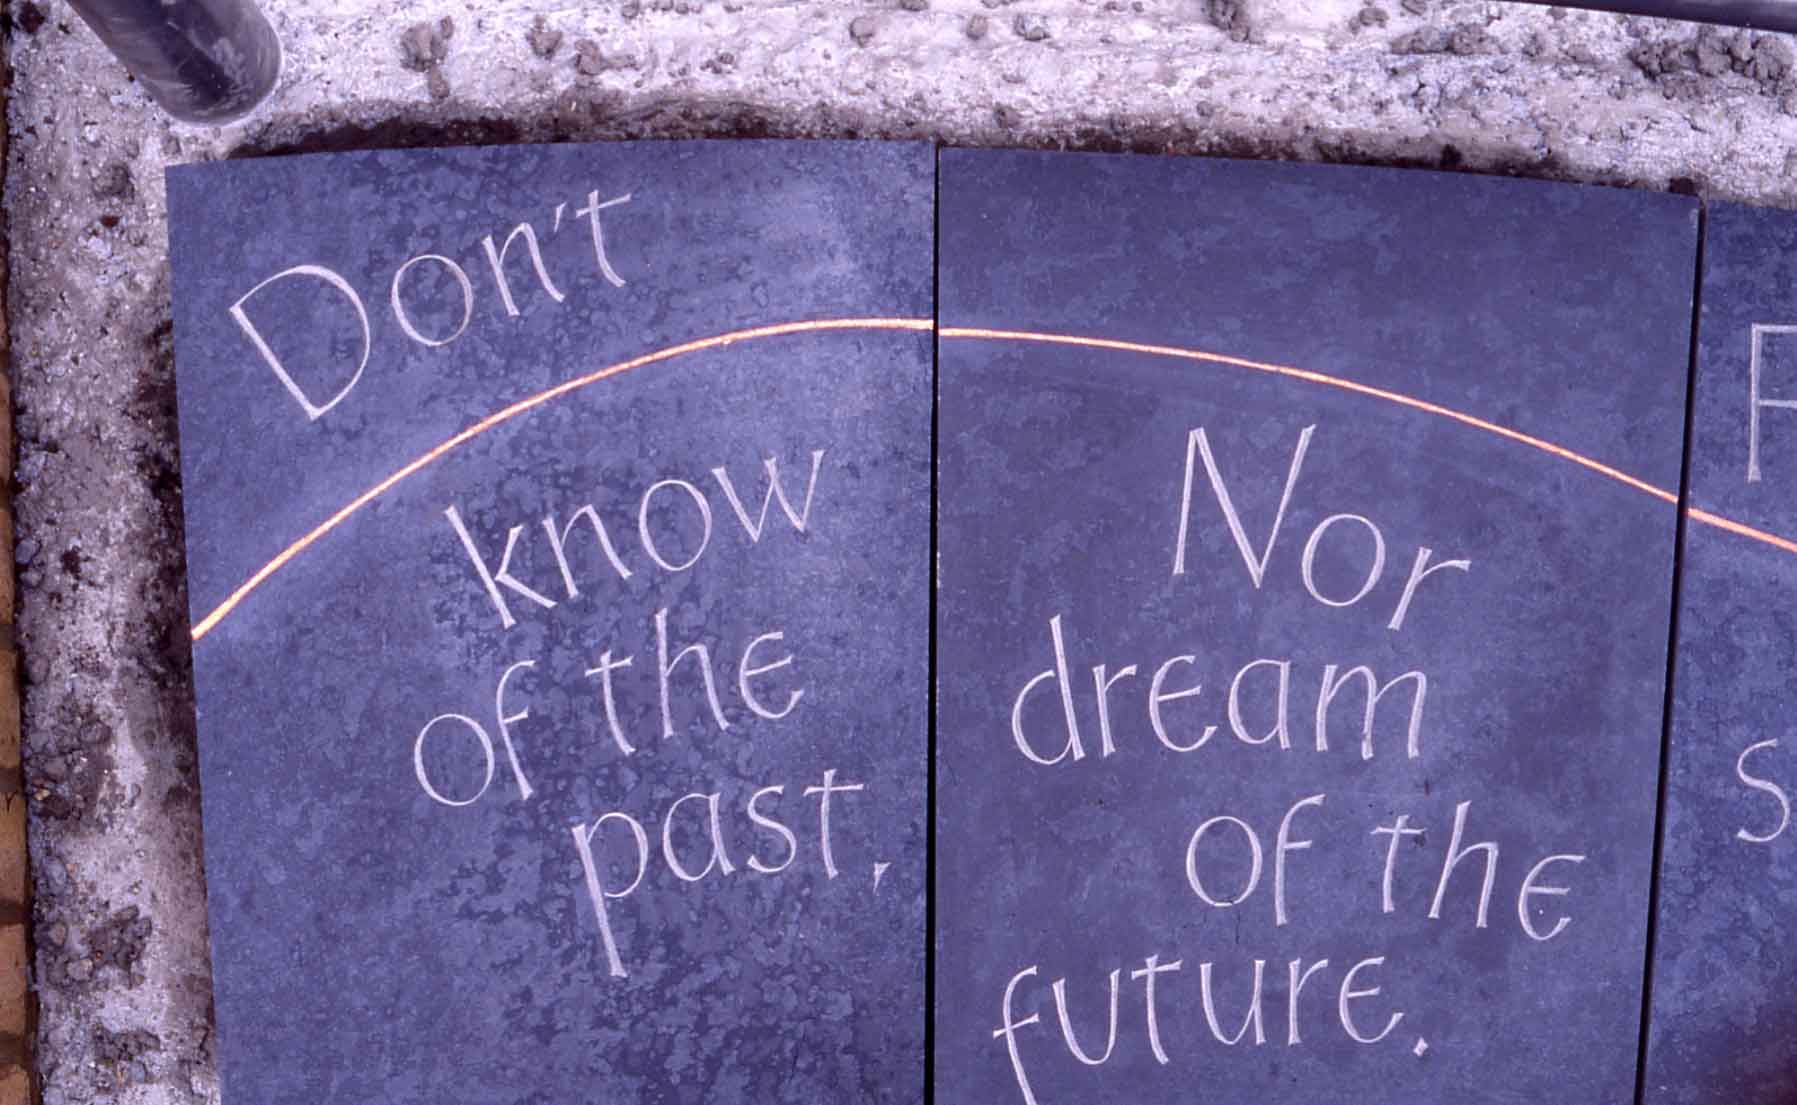 Don't
know
of the
past,
Nor
dream
of the
future.